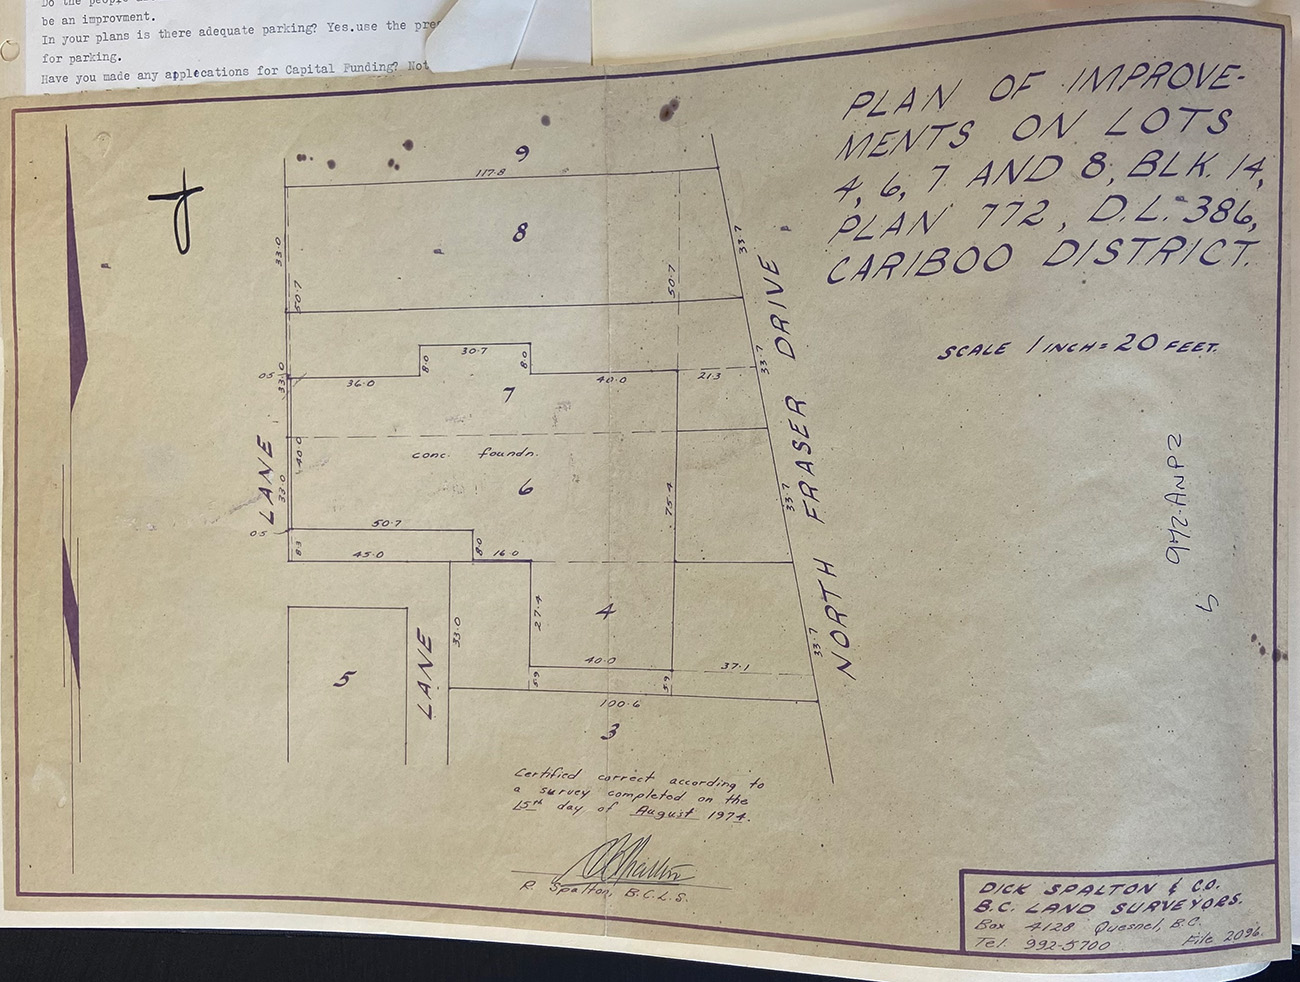 be an improvment.
In your plans is there adequate parking? Yes.use the
for parking.
Have you made any applecations for Capital Funding?
PLAN OF IMPROVE-
MENTS ON LOTS
4, 6, 7 AND 8, BLK. 14,
PLAN 772, D.L. 386,
CARIBOO DISTRICT.
SCALE 1 INCH = 20 FEET.
9
117.8
8
33.0
50.7
50.7
33.7
NORTH FRASER DRIVE
30.7
8.0
8.0
0.5
33.0
36.0
40.0
21.3
33.7
7
LANE
40.0
conc. foundn.
6
33.0
75.4
33.7
50.7
0.5
8.3
45.0
8.0
16.0
4
27.4
33.0
33.7
40.0
37.1
5
LANE
5.9
5.9
100.6
3
Certified correct according to
a survey completed on the
15th day of August 1974.
R. Spalton, B.C.L.S.
DICK SPALTON & CO.
B.C. LAND SURVEYORS.
Box 4128 Quesnel, B.C.
Tel. 992-5700 File 2096.
5